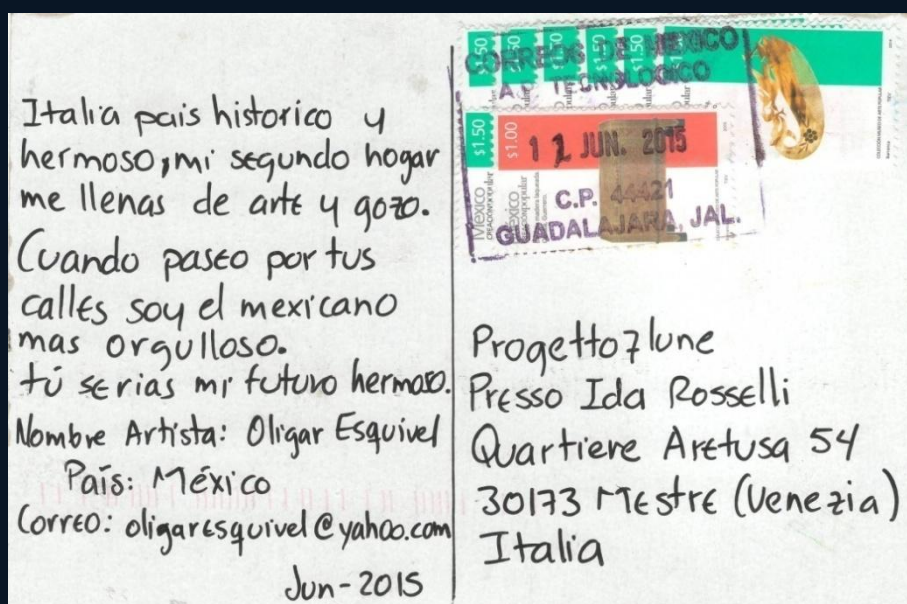 Italia pais historico y
hermoso, mi segundo hogar
me llenas de arte y gozo.
Cuando paseo por tus
calles soy el mexicano
mas orgulloso.
tú serias mi futuro hermoso.
Nombre Artista: Oligar Esquivel
País: México
Correo: oligaresquivel@yahoo.com
Jun-2015
$1.50
$1.50
$1.50
$1.50
$1.50
CORREOS DE MEXICO
TECNOLOGICO
$1.50
$1.00
JUN. 2015
México
México
C.P. 44421
GUADALAJARA, JAL.
Progetto7lune
Presso Ida Rosselli
Quartiere Aretusa 54
30173 Mestre (Venezia)
Italia